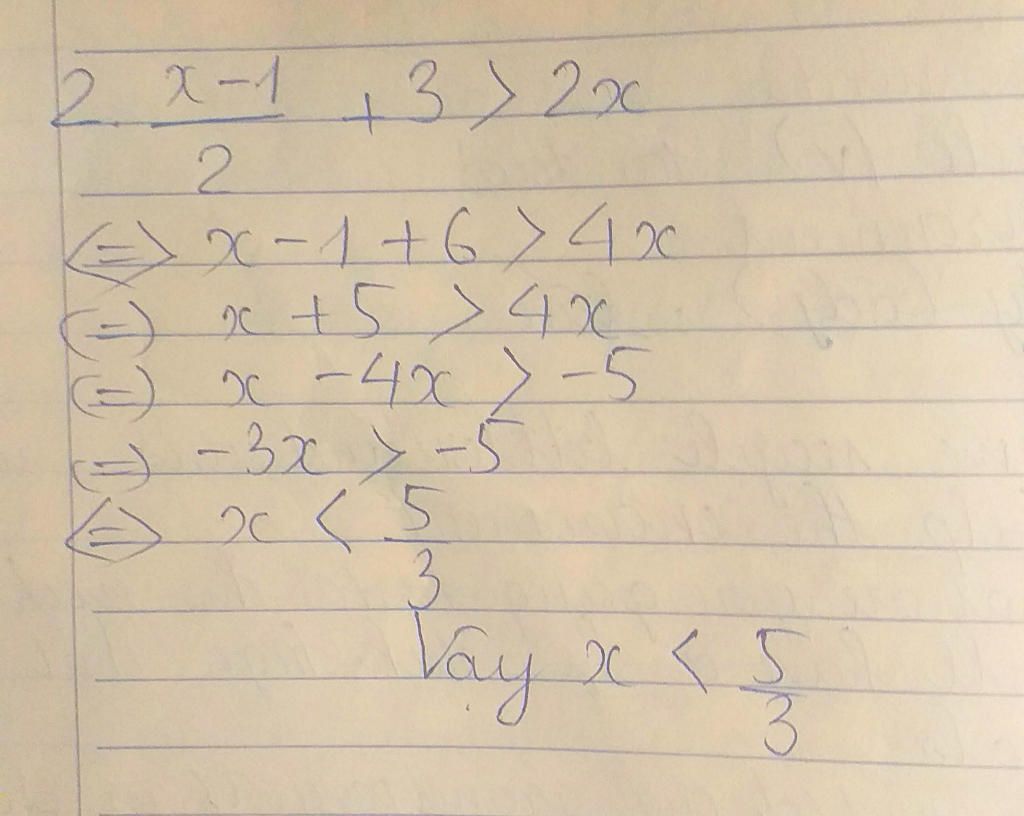 2. x-1/2 + 3 > 2x
<=> x - 1 + 6 > 4x
(=) x + 5 > 4x
(=) x - 4x > -5
(=) -3x > -5
<=> x < 5/3
Vậy x < 5/3